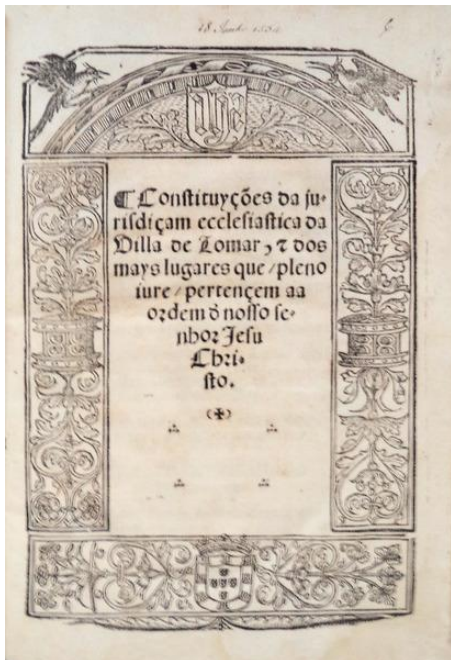 18 Junho 1554
ihs
¶ Constituyções da ju-
risdiçam ecclesiastica da
Villa de Tomar, ⁊ dos
mays lugares que / pleno
iure / pertençem aa
ordem d̃ nosso se-
nhor Jesu
Chri-
sto.
(✠)